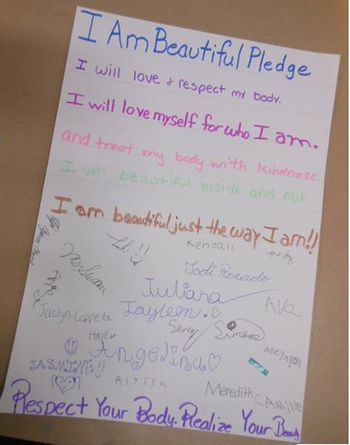 I Am Beautiful Pledge
I will love & respect my body.
I will love myself for who I am.
and treat my body with kindness.
I am beautiful inside and out.
I am beautiful just the way I am!!
Kendall
Jodi Rosado
Juliana
AVA
Jaclyn
Jayleen
Hailey
Angelina
JASMINE!!
Alyssa
Meredith CAMILLE
Respect Your Body. Realize Your Beauty